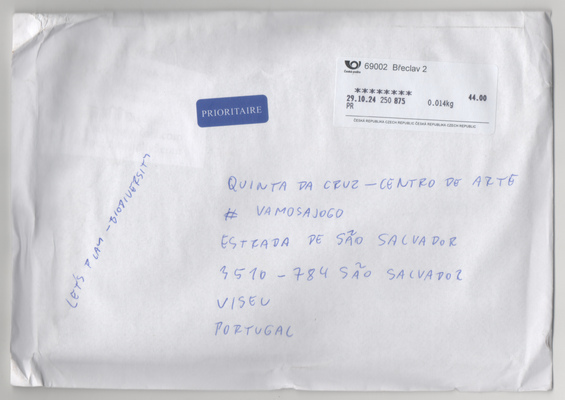 69002 Břeclav 2
Česká pošta
********
29.10.24 250 875 0.014kg 44.00
PR
ČESKÁ REPUBLIKA CZECH REPUBLIC ČESKÁ REPUBLIKA CZECH REPUBLIC
PRIORITAIRE
QUINTA DA CRUZ - CENTRO DE ARTE
# VAMOSAJOGO
ESTRADA DE SÃO SALVADOR
3510 - 784 SÃO SALVADOR
VISEU
PORTUGAL
LET'S PLAY - BIODIVERSITY